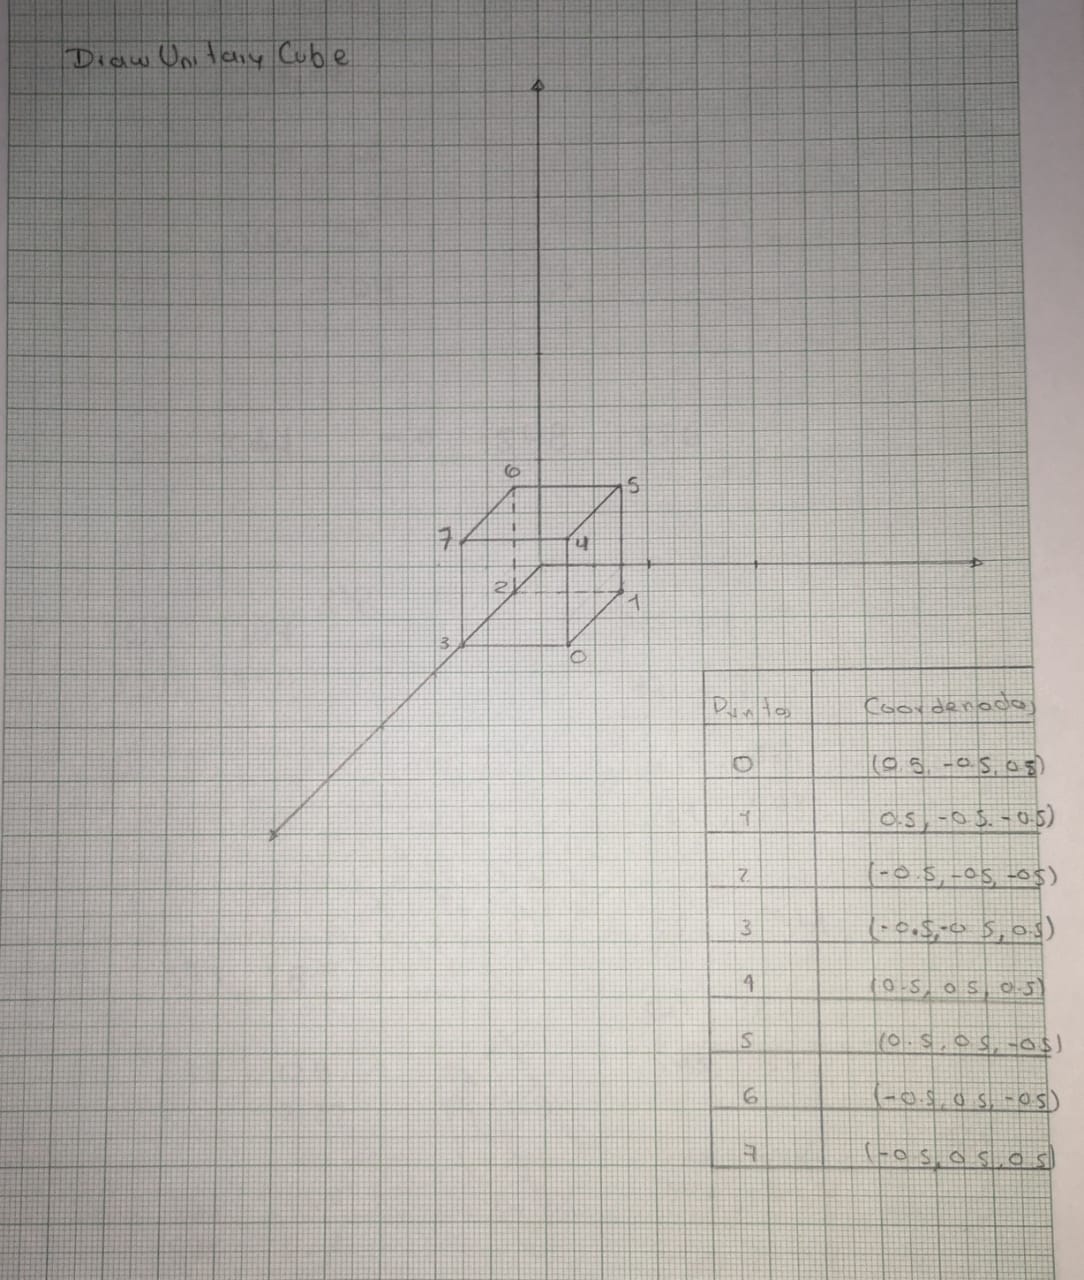 Draw Unitary Cube
6
5
7
4
2
1
3
0
Puntos Coordenadas
0 (0.5, -0.5, 0.5)
1 0.5, -0.5. -0.5)
2 (-0.5, -05, -05)
3 (-0.5,-0 5, 0.5)
4 (0.5, 0 5, 0.5)
5 (0.5, 0 5, -05)
6 (-0.5, 0 5, -0.5)
7 (-0 5, 0 5, 0 5)